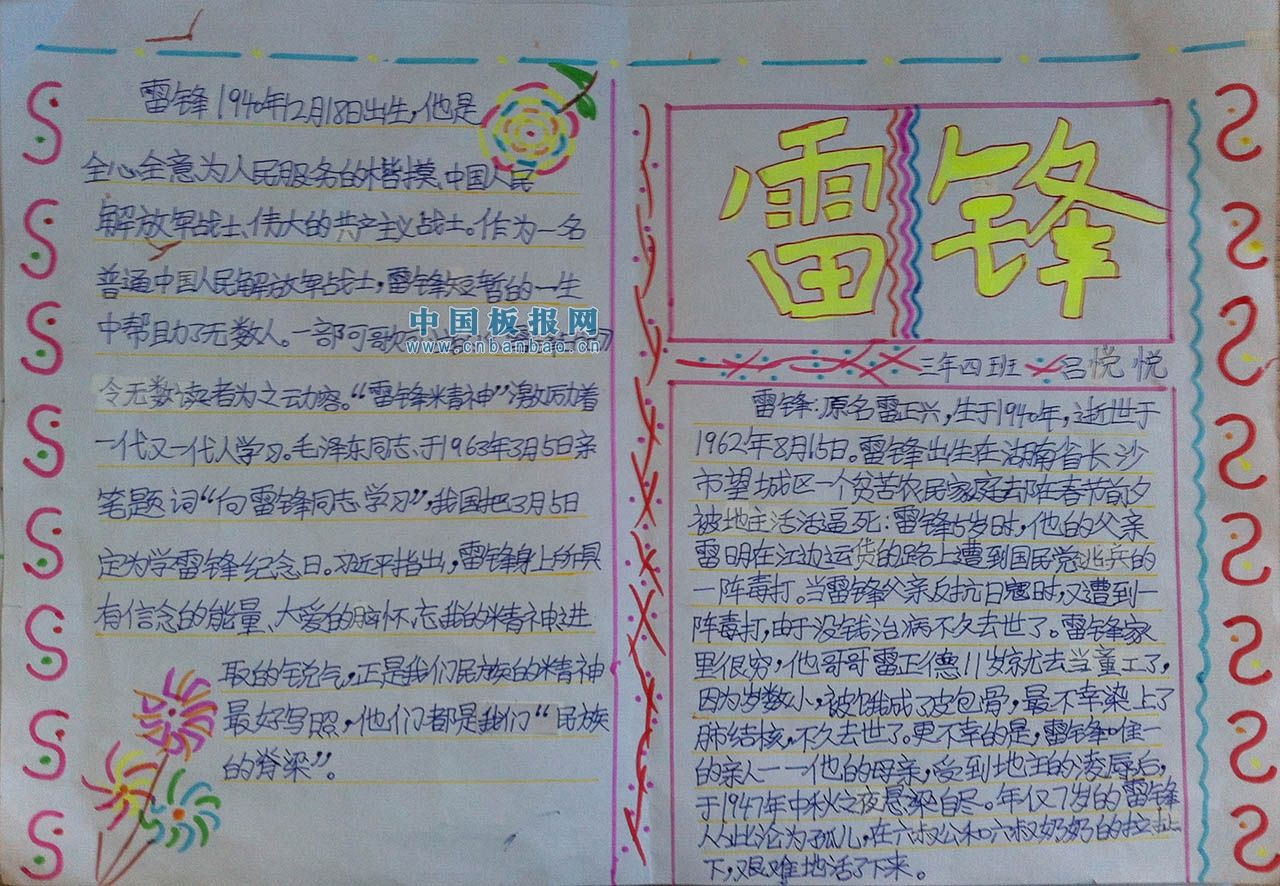 雷锋1940年12月18日出生,他是
全心全意为人民服务的楷摸、中国人民
解放军战士、伟大的共产主义战士。作为一名
普通中国人民解放军战士,雷锋短暂的一生
中帮助了无数人。一部可歌
中国板报网
www.cnbanbao.cn
令无数读者为之动容。“雷锋精神”激励着
一代又一代人学习。毛泽东同志、于1963年3月5日亲
笔题词“向雷锋同志学习”,我国把3月5日
定为学雷锋纪念日。习近平指出,雷锋身上所具
有信念的能量、大爱的胸怀、忘我的精神、进
取的锐气,正是我们民族的精神
最好写照,他们都是我们“民族
的脊梁”。
雷锋
三年四班 吕悦悦
雷锋:原名雷正兴,生于1940年,逝世于
1962年8月15日。雷锋出生在湖南省长沙
市望城区一个贫苦农民家庭却在春节前夕
被地主活活逼死:雷锋5岁时,他的父亲
雷明在江边运货的路上遭到国民党逃兵的
一阵毒打。当雷锋父亲反抗日寇时,又遭到一
阵毒打,由于没钱治病不久去世了。雷锋家
里很穷,他哥哥雷正德11岁就去当童工了,
因为岁数小,被饿成了皮包骨,最不幸染上了
肺结核,不久去世了。更不幸的是,雷锋唯一
的亲人——他的母亲,受到地主的凌辱后,
于1947年中秋之夜悬梁自尽。年仅7岁的雷锋
从此沦为孤儿,在六叔公和六叔奶奶的拉扯
下,艰难地活了下来。